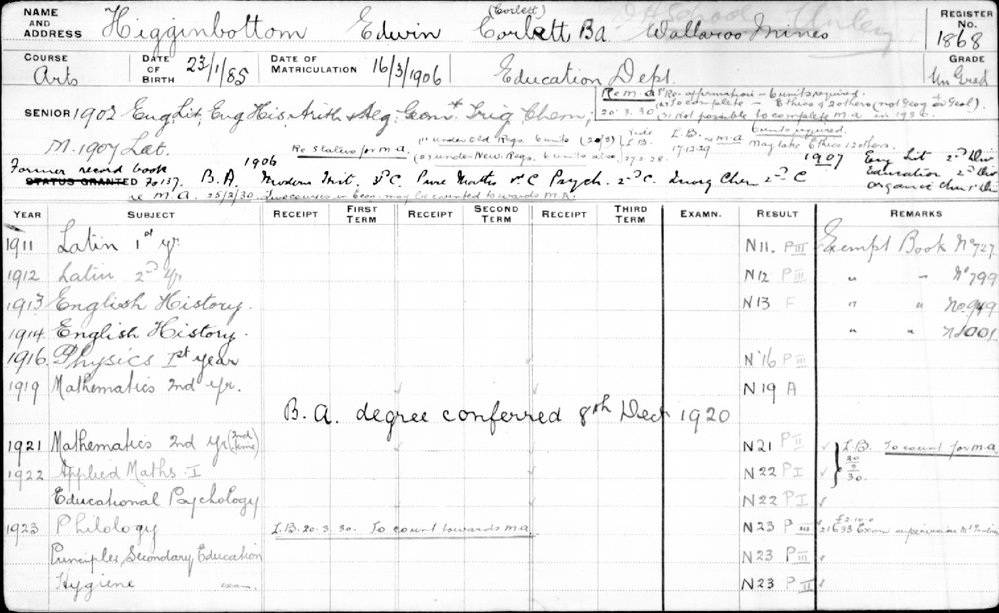 NAME AND ADDRESS Higginbottom Edwin Corbett (Corlett) Ba Wallaroo Mines REGISTER No. 1868
COURSE Arts DATE OF BIRTH 23/1/85 DATE OF MATRICULATION 16/3/1906 Education Dept. GRADE Un Grad
Re M.A. Re-affirmation - 6 units required.
20.3.30 (2) To complete - Ethics & 2 others (not Geog or Geol)
SENIOR 1902 Eng Lit, Eng His, Arith & Alg, Geom & Trig, Chem; (3) Not possible to complete M.A. in 1930.
M. 1907 Lat. Re Status for M.A. (1) under Old Regs 6 units (2) under New Regs 6 units also I.B. 17.12.29 re M.A. 6 units required. May take Ethics & 2 others.
Former record book
STATUS GRANTED Fo 137. B.A. 1906 Modern Hist. 3rd C. Pure Maths C Psych. 2nd C. Inorg Chem 2nd C 1907 Eng Lit 2nd Div
Education 2nd Div
Organic Chem 1st Div
re M.A. 25/2/30. Two courses in Econ. may be counted towards M.A.
YEAR SUBJECT RECEIPT FIRST TERM RECEIPT SECOND TERM RECEIPT THIRD TERM EXAMN. RESULT REMARKS
1911 Latin 1st yr. N11. P III Exempt Book No 727.
1912 Latin 2nd yr N12 P III " " No 799
1913 English History. N13 F " " No 949
1914 English History. " " No 1001.
1916 Physics 1st year N'16 P III
1919 Mathematics 2nd yr. N19 A
B.A. degree conferred 8th Dec 1920
1921 Mathematics 2nd yr (2nd time) N21 P II I.B. To count for M.A.
1922 Applied Maths I N22 P I 20 3 30.
Educational Psychology N22 P I
1923 Philology I.B. 20.3.30. To count towards M.A. N23 P III £2.10.0 21633 Exam supervision
Principles, Secondary Education N23 P III
Hygiene exam. N23 P II